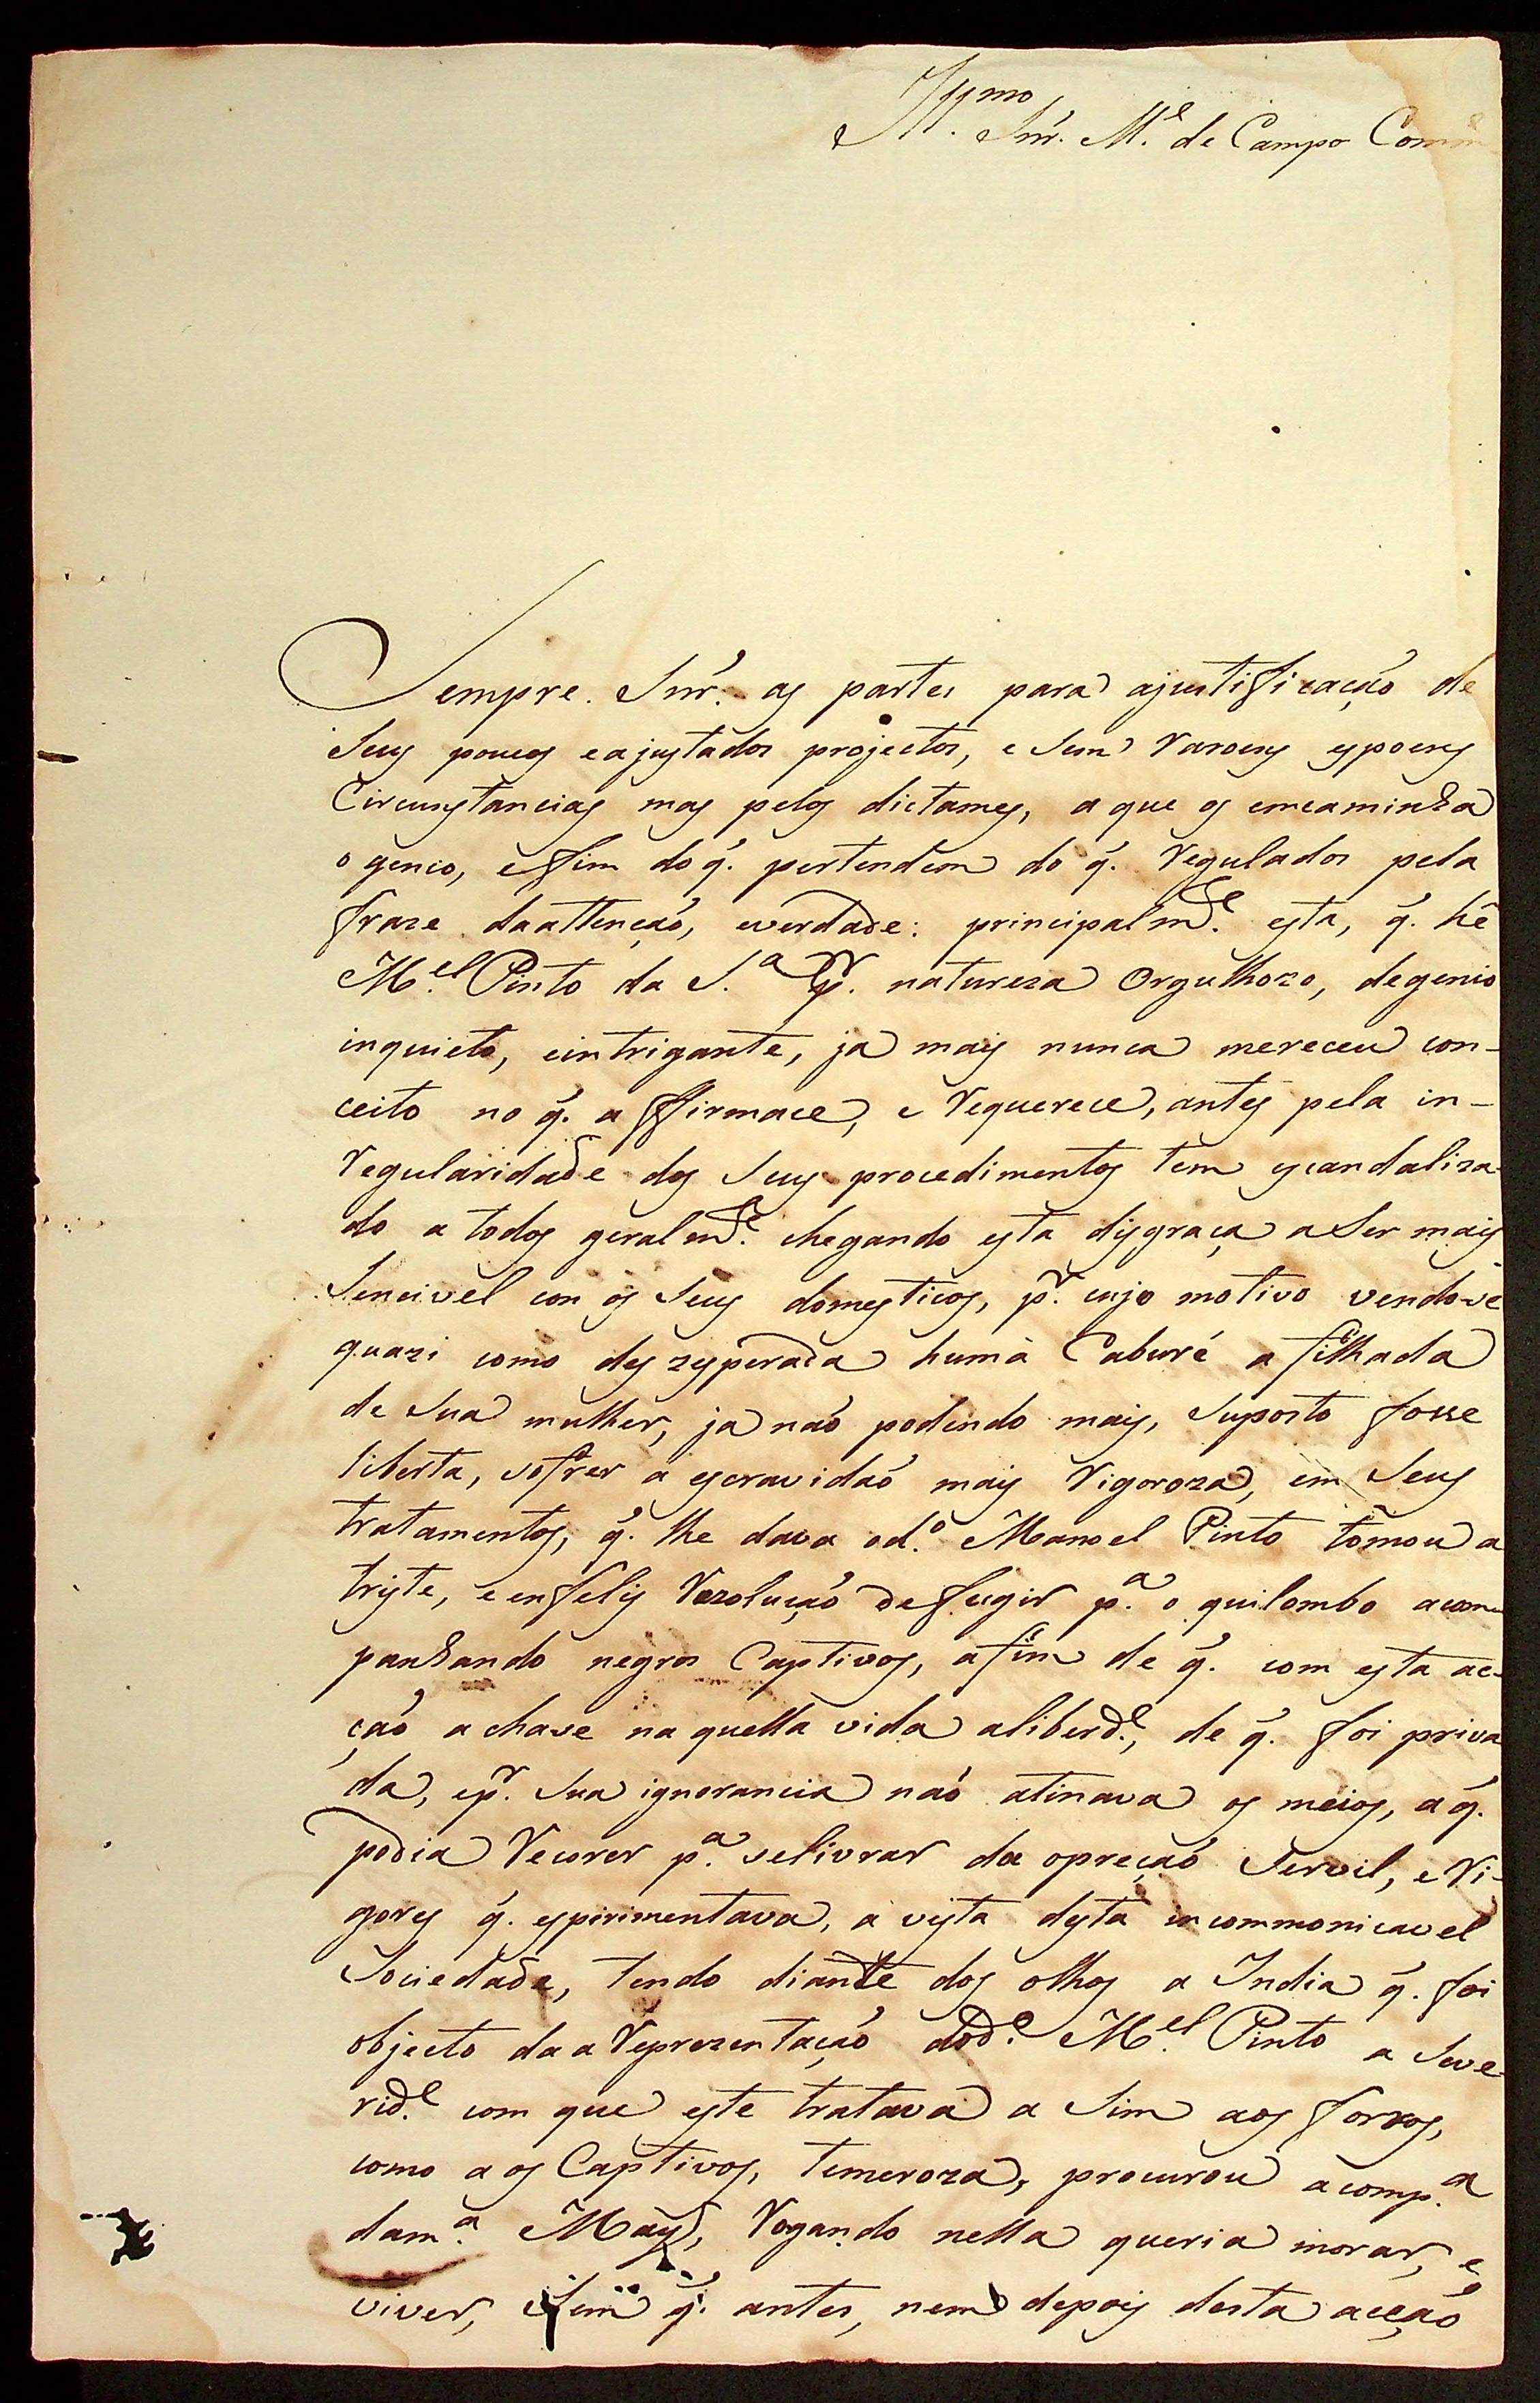 Ill.mo Snr. M.e de Campo Comm
Sempre. Snr. as partes para ajustificação de
Seus poucos eajustados projectos, e Sem Varoens espoens
Circunstancias mas pelos dictames, a que os emcaminha
o genio, efim do q. pertendem do q. Regulados pela
fraze daattenção, everdade: principalmde. esta, q. hé
M.el Pinto da S.a pr. natureza Orgulhozo, degenio
inquieto, eintrigante, ja mais nunca mereceu con-
ceito no q. affirmace, e Requerece, antes pela in-
Regularidade dos Seus procedimentos tem escandaliza-
do a todos geralmde. chegando esta disgraça aSer mais
Sencivel con os Seus domesticos, pr. cujo motivo vendo-se
quazi como deszesperada huma Caburé afilhada
de Sua mulher, ja não podendo mais, Suposto fosse
liberta, sofrer a escravidão mais Rigoroza, em Seus
tratamentos, q. lhe dava od.o Manoel Pinto tomou a
triste, e enfelis Rezolução de fugir p.a o quilombo acom
panhando negros Captivos, afim de q. com esta ac-
ção achase naquella vida aliberd.e, de q. foi priva
da, epr. Sua ignorancia não atinava os meios, a q.
podia Recorer p.a selivrar da opreção Servil, e Ri-
gores q. espirimentava, a vista desta incommonicavel
Sociedade, tendo diante dos olhos a India q. foi
objecto da a Reprezentação dod.o M.el Pinto a Seve-
rid.e com que este tratava a Sim aos forros,
como aos Captivos, temeroza, procurou acomp.a
dam.a May, Rogando nella queria morar, e
viver, Sem q. antes, nem depois desta acção